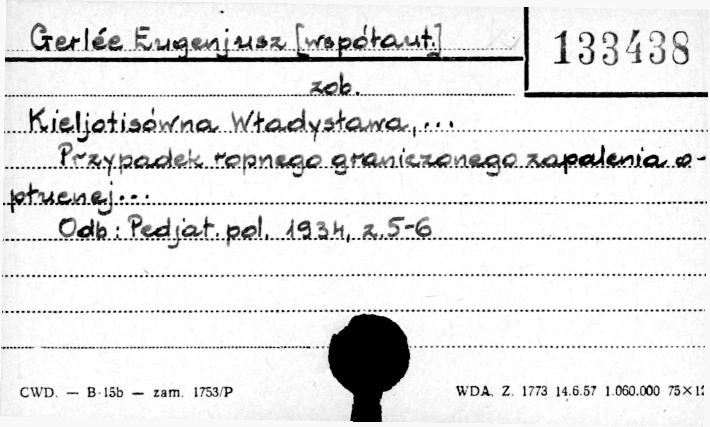 Gerlée Eugenjusz [współaut.]
133438
zob.
Kieljotisówna Władysława,...
Przypadek ropnego graniczonego zapalenia o-
płucnej...
Odb: Pedjat. pol. 1934, z.5-6
CWD. — B-15b — zam. 1753/P
WDA. Z. 1773 14.6.57 1.060.000 75×12